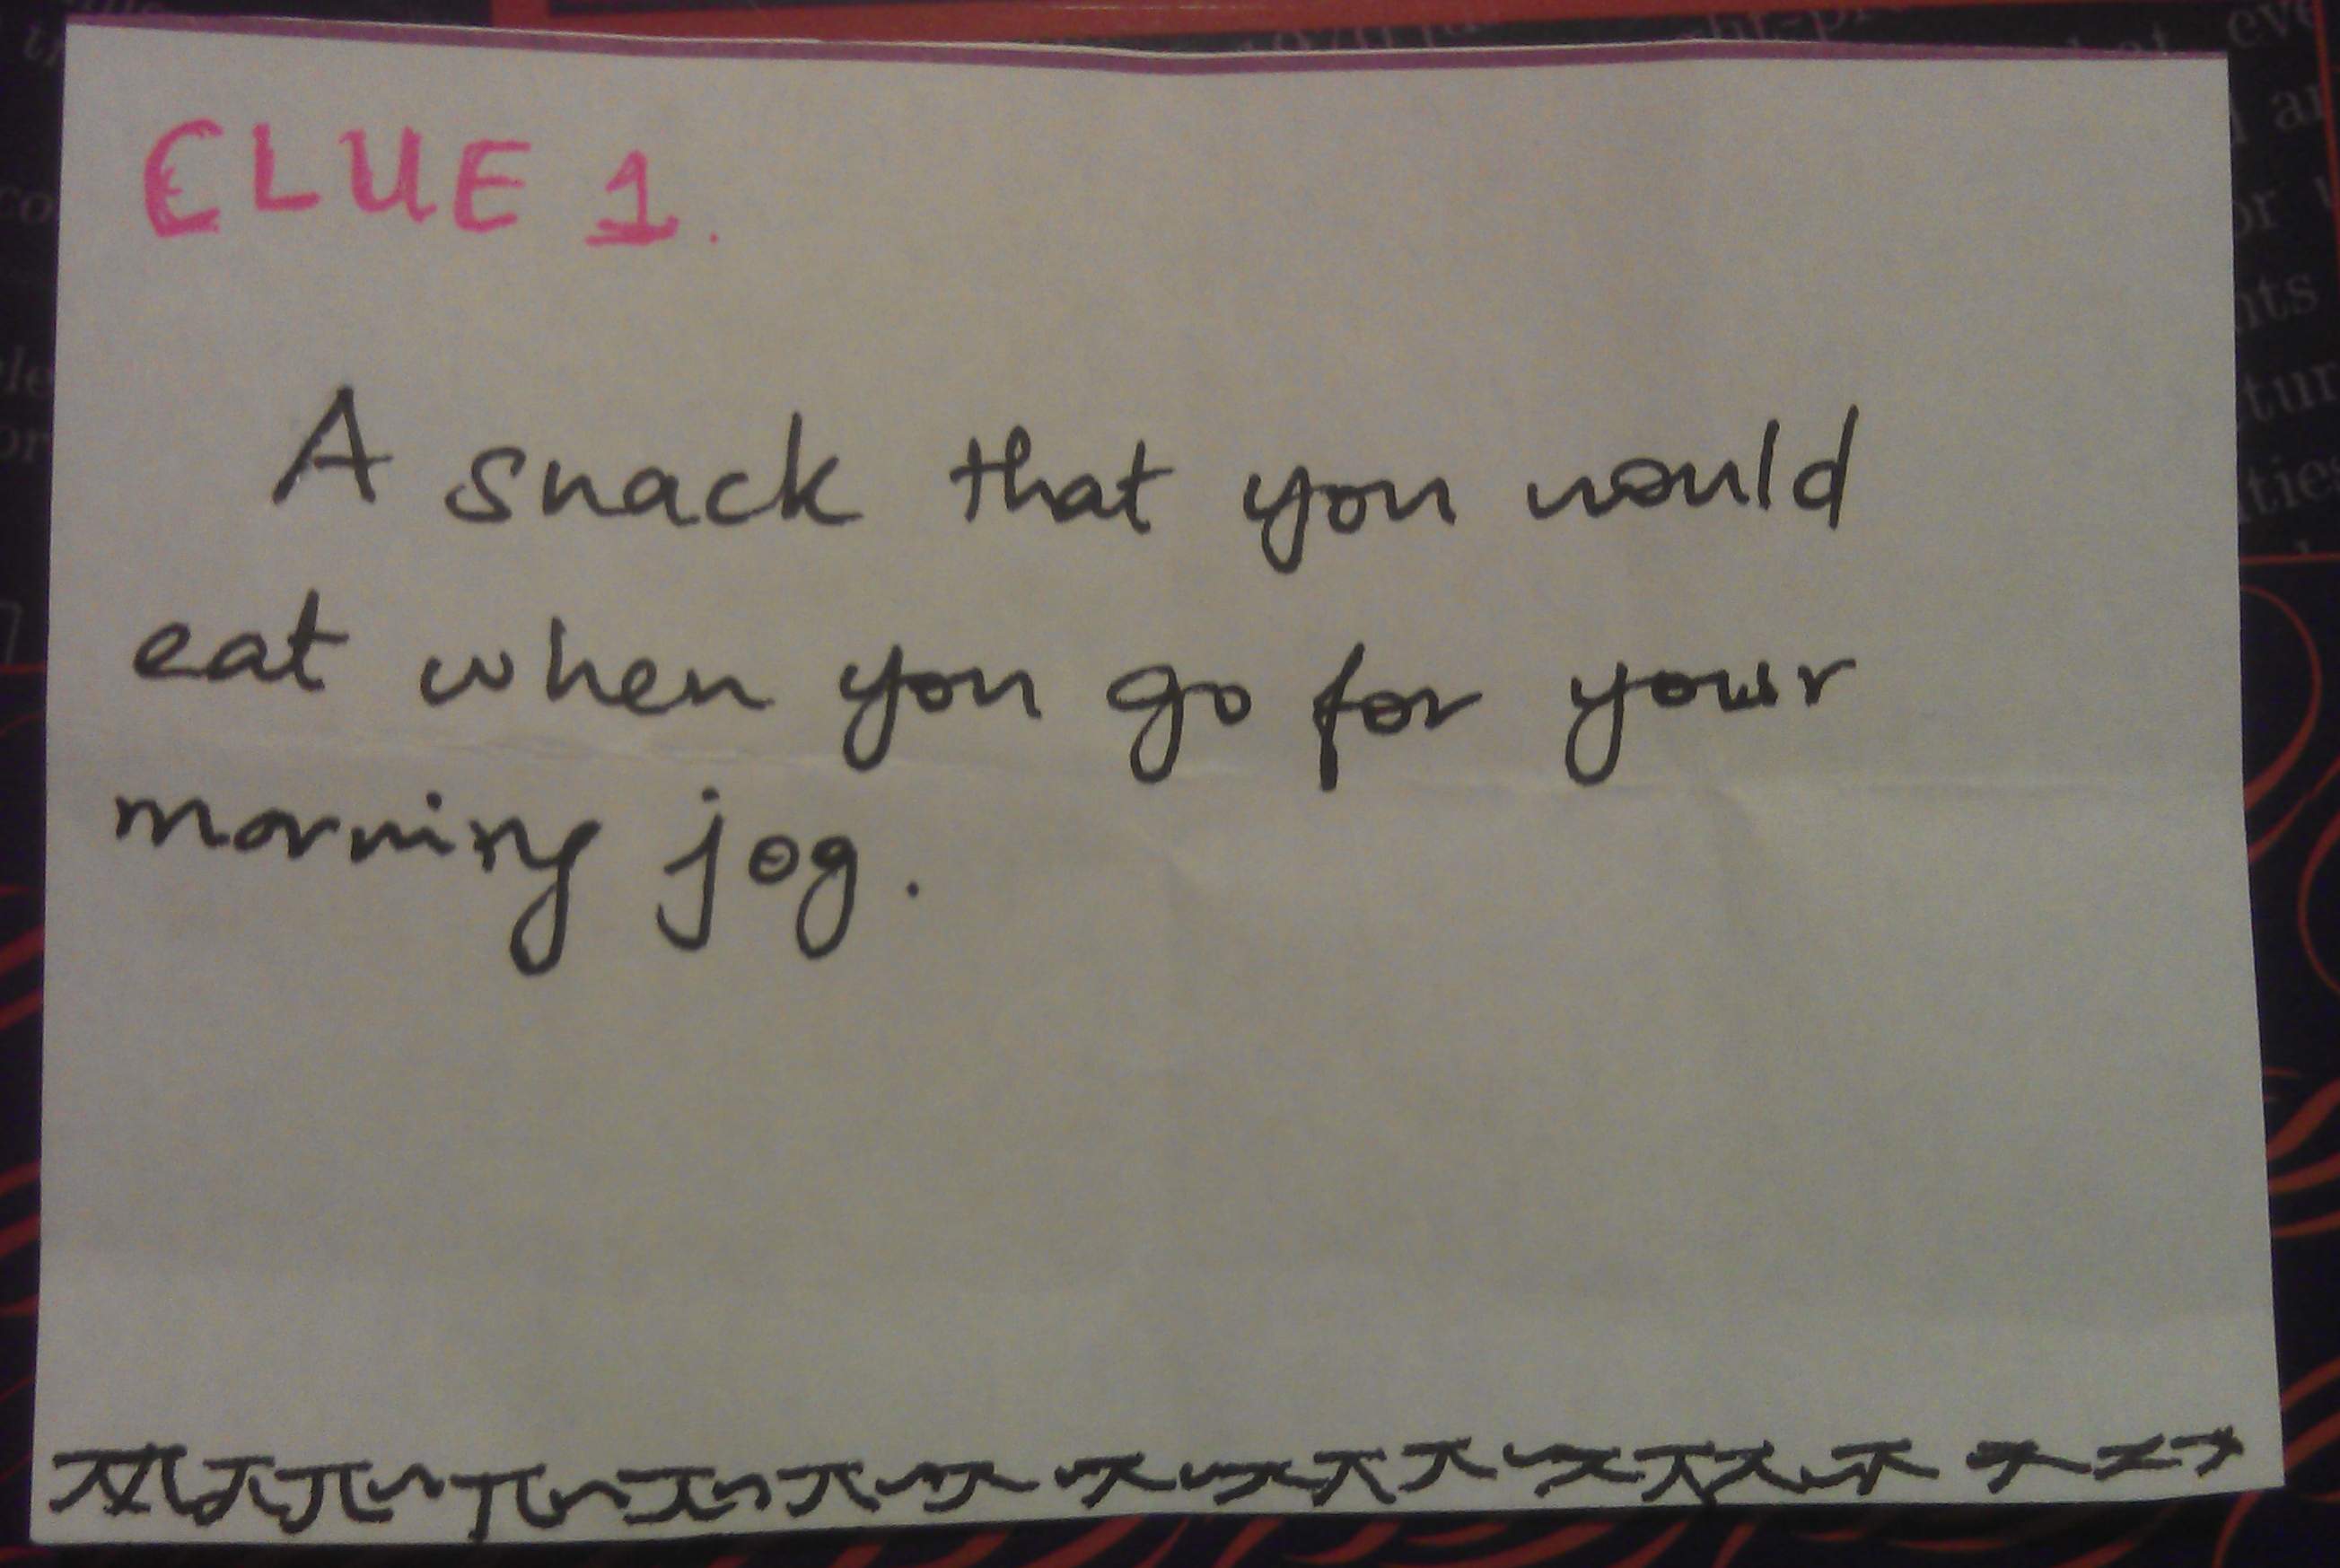 CLUE 1.
A snack that you would
eat when you go for your
morning jog.